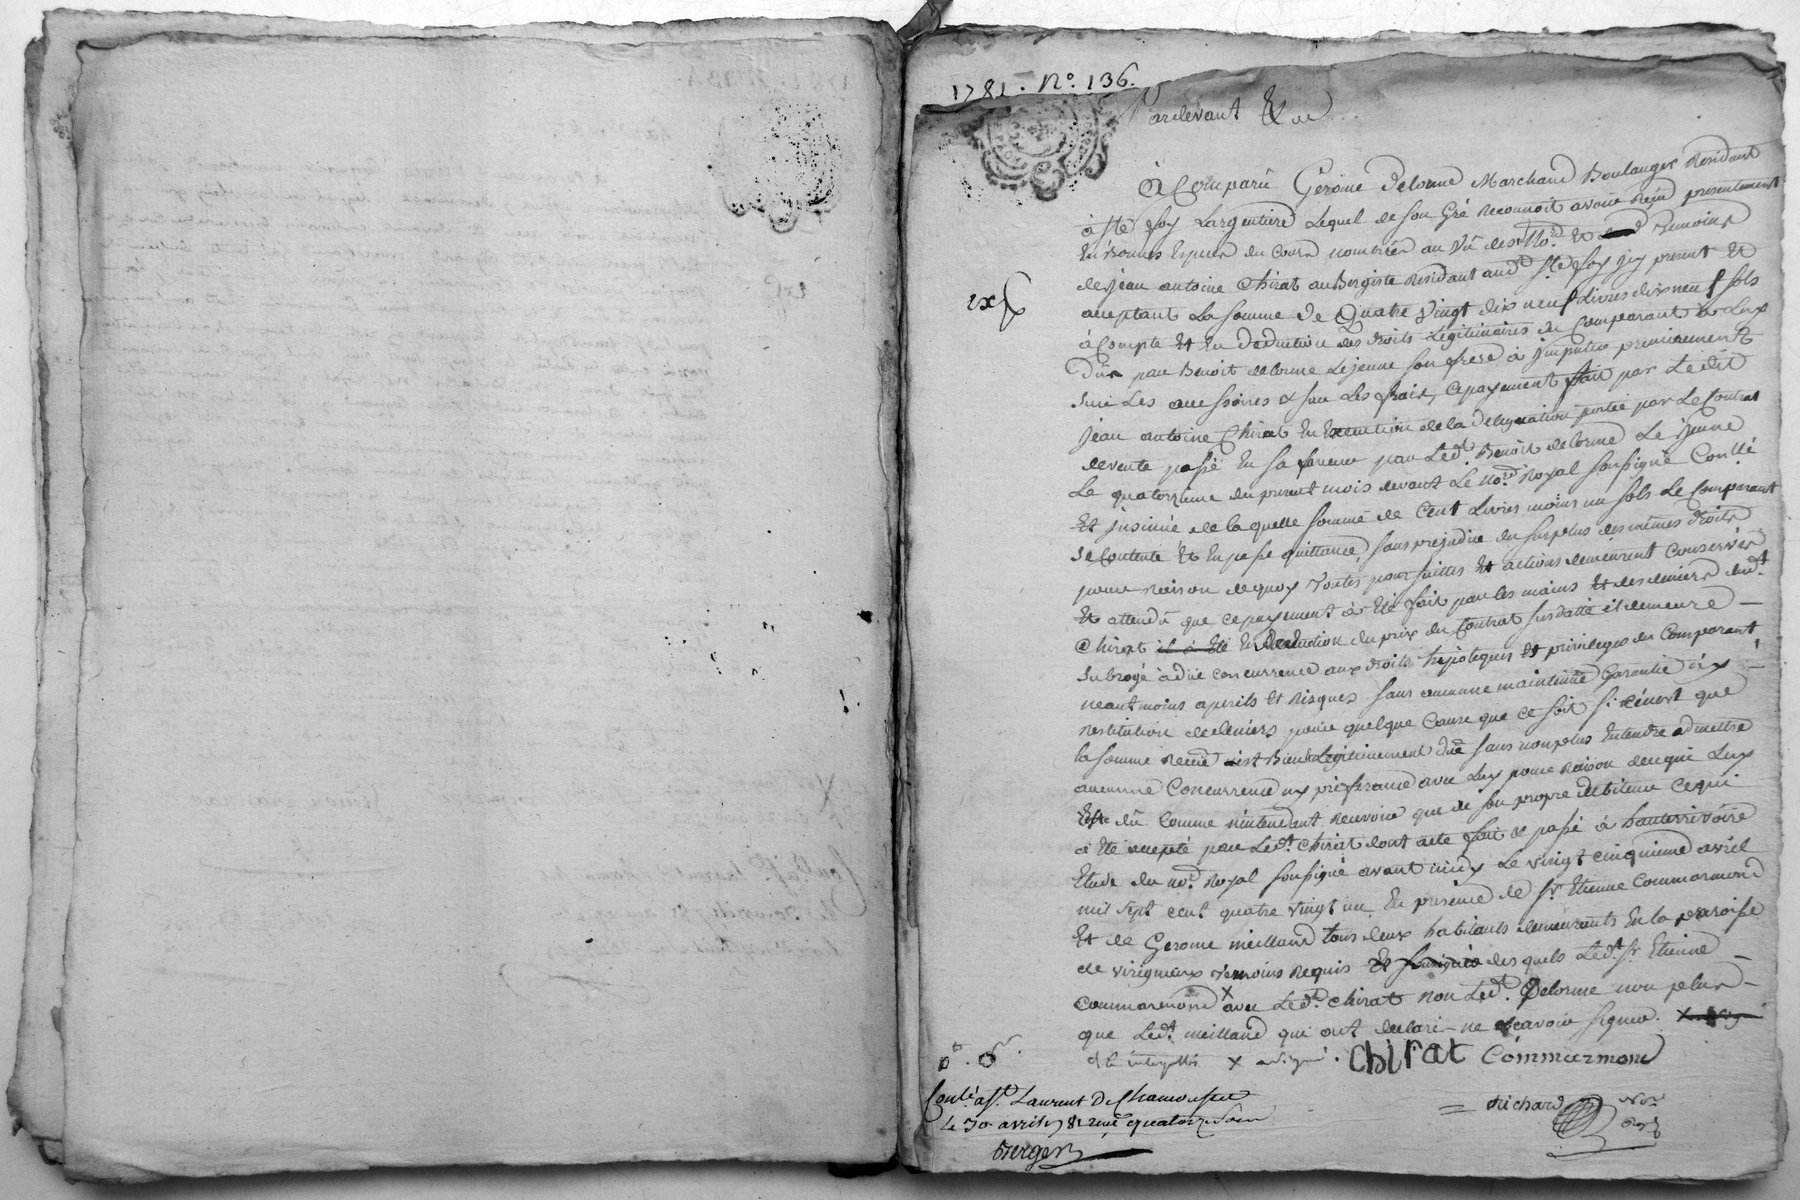 1781. No. 136.
Pardevant &
à Comparü Gerome Delorme Marchand Boulanger Residant
à Ste foy Largentiere Lequel de son Gré Reconnoit avoir Reçu presentement
En Bonnes Especes du Cours nombrées au vû des No.re Et Temoins
de jean antoine Chirat auBergiste Residant aud. Ste foy jcy present Et
exp
acceptant La somme de Quatre vingt dix neuf Livres dix neuf sols
à Compte Et En Deduction des droits Legitimaires du Comparant à Luy
Dûs par Benoit delorme Lejeune son frere à jmputer premierement
sur Les accessoires & sur Les frais, Cepayement fait par Ledit
jean antoine Chirat En Execution de la Delegation portée par Le Contrat
devente passé En sa faveur par Led.t Benoit delorme Le jeune
Le quatorzieme du present mois devant Le No.re Royal soussigné Con.llé
Et jnsinué de laquelle somme de Cent Livres moins un sols Le Comparant
se Contente Et En passe quittance, sans prejudice du surplus des mêmes droits
pour raison dequoy toutes poursuittes Et actions demeurent Conservées
Et attendû que cepayement à Eté fait par les mains Et des deniers dud.t
Chirat il à Eté En Deduction du prix du Contrat susdatté il demeure
subrogé à düe concurrence aux droits hipoteques Et privileges du Comparant
neantmoins aperils Et Risques sans aucune maintenüe Garantie ny
restitution dedeniers pour quelque Cause que Ce soit si cenest que
la somme Recüe est Bien Legitimement düe sans nonplus Entendre admettre
aucunne Concurrence ny preferance avec Luy pour Raison dequi Luy
Reste dû Comme n'entendant recevoir que de son propre debiteur Cequi
à Eté accepté par Led.t Chirat dont acte fait & passé à hauterivoire
Etude du no.re Royal soussigné avant midy Le vingt cinquieme avril
mil sept cent quatre vingt un En presence de Sr. Etienne Commarmond
Et de Gerome meilland tous deux habitants demeurants En la paroisse
de virigneux temoins Requis Et soussignés desquels Led.t Sr Etienne
Commarmond x avec Led.t Chirat Non Led.t Delorme non plus
que Led.t meilland qui ont declaré ne scavoir signer.
x a signé. Chirat Commarmond
Conl.é a St. Laurent De Chamousset
Richard No.re
Le 30 avril 1781 Reçu quatorze sols
Roy.l
Berger